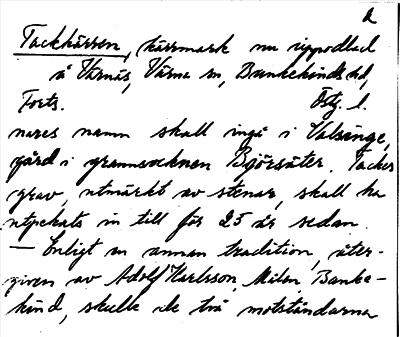 2
Tackkärren, kärrmark nu uppodlad
å Värnäs, Värna sn, Bankekinds hd,
Forts. Östg. l.
nares namn skall ingå i Valsinge,
gård i grannsocknen Björsäter. Tackes
grav, utmärkt av stenar, skall ha
utpekats in till för 25 år sedan.
— Enligt en annan tradition, åter-
given av Adolf Karlsson, Banke-
kind, skulle de två motståndarna